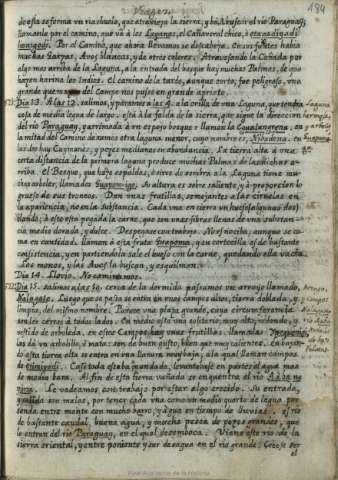 Viages
184
de esta se forma un riachuelo, que atraviesa la sierra, y
el rio Paraguay,
llamanla por el camino, que và à los
el Cañaveral chico, ò
Por el Camino, que ahora llevamos se descabeza. En sus fuentes habia
muchas Garzas, Aves blancas, y de otros colores. Atravesando la Cañada por
algo mas arriba de la Laguna, a la entrada del bosque hay muchas Palmas, de que
hacen harina los Indios. El camino de la tarde, aunque corto, fue peligroso, una
grande quemazon del Campo nos puso en grande aprieto.
Dia 13. A las 12. salimos, y pàramos a las 4. a la orilla de una Laguna, que tendrà
cosa de media legua de largo. està à la falda de la sierra, que sigue la direccion
del rio Paraguay, y arrimada à un espeso bosque y llaman la
à la mitad del Camino de vamos otra laguna menor, cuyo nombre es,
En
las dos hay Caymanes, y peces medianos en abundancia. La tierra alta à una
cierta distancia de la primera laguna produce muchas Palmas de las
arriba. El Bosque, que hace espaldas, ò sirve de sombra a la Laguna tiene mu-
chos arboles, llamados
Su altura es sobresaliente, y à proporcion lo
grueso de sus troncos. Dan unas frutillas, semejantes a las ciruelas en
la apariencia, no en la substancia. Cada una encierra un hueso (algunas dos)
blando; à este esta pegada la carne, que son unas fibras llenas de una substan-
cia medio dorada, y dulce. Despegase con trabajo. No es nociba, aunque se co-
ma en cantidad. llaman à esta fruta
y su cortecilla es de bastante
consistencia, y en partiendola sale el hueso con la carne, quedando ella vacia.
Los monos, y las Aves la buscan, y esquilman.
Dia 14. Llovio. No caminamos.
Dia 15. salimos a las 10. cerca de la dormida pasamos un arroyo llamado,
Luego que se pasa se entra en unos campos altos, tierra doblada, y
limpia, del mismo nombre. Parece una plaza grande, cuya circunferencia
à todos lados. En medio està una isleta, muy alta, redonda, y
vestida de arboleda, en estos Campos hay unas frutillas, llamadas
las dà un arbolito, ò mata: son de buen gusto, bien que muy calientes. En bajan-
do esta tierra alta se entra en una llanura muy baja, à la qual llaman campos
de
Casi toda estaba inundada, levantandose en partes el agua mas
de media bara. Al fin de esta tierra anegada se encuentra el rio
Le vadeamos con trabajo por estar algo crecido. Su entrada,
y salida son malas, por tener cada una como un medio quarto de legua por
tenida entre monte con mucho barro, y agua en tiempo de lluvias. El rio
es bastante caudal, buena agua, y mucha pesca de peces grandes, que
le entran del rio Paraguay, en el qual desemboca. Viene este rio de la
sierra oriental, y entre poniente y sur desagua en el rio grande. Crece por
el
Laguna
hermosa,
y arboles
Arroyo,
y campos
Real Academia de la Historia